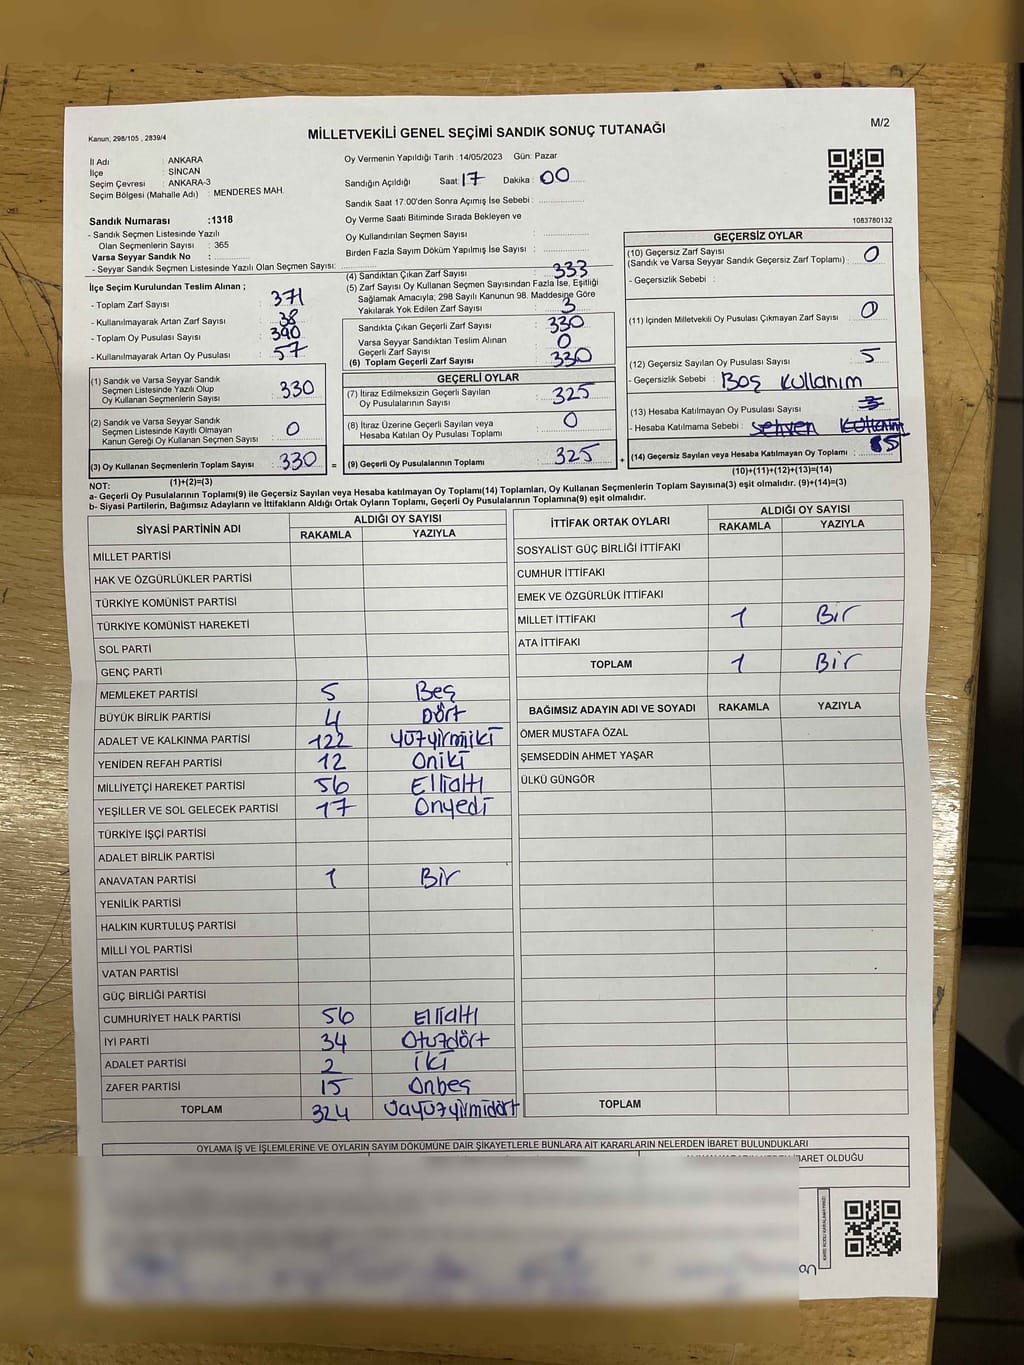 Kanun, 298/105 , 2839/4
MİLLETVEKİLİ GENEL SEÇİMİ SANDIK SONUÇ TUTANAĞI
M/2
İl Adı : ANKARA
İlçe : SİNCAN
Seçim Çevresi : ANKARA-3
Seçim Bölgesi (Mahalle Adı) : MENDERES MAH.
Sandık Numarası :1318
- Sandık Seçmen Listesinde Yazılı
Olan Seçmenlerin Sayısı : 365
Varsa Seyyar Sandık No :
- Seyyar Sandık Seçmen Listesinde Yazılı Olan Seçmen Sayısı:
Oy Vermenin Yapıldığı Tarih :14/05/2023 Gün: Pazar
Sandığın Açıldığı Saat: 17 Dakika: 00
Sandık Saat 17:00'den Sonra Açımış İse Sebebi :
Oy Verme Saati Bitiminde Sırada Bekleyen ve
Oy Kullandırılan Seçmen Sayısı :
Birden Fazla Sayım Döküm Yapılmış İse Sayısı :
1083780132
İlçe Seçim Kurulundan Teslim Alınan ;
- Toplam Zarf Sayısı : 371
- Kullanılmayarak Artan Zarf Sayısı : 38
- Toplam Oy Pusulası Sayısı : 390
- Kullanılmayarak Artan Oy Pusulası : 57
(1) Sandık ve Varsa Seyyar Sandık
Seçmen Listesinde Yazılı Olup
Oy Kullanan Seçmenlerin Sayısı : 330
(2) Sandık ve Varsa Seyyar Sandık
Seçmen Listesinde Kayıtlı Olmayan
Kanun Gereği Oy Kullanan Seçmen Sayısı : 0
(3) Oy Kullanan Seçmenlerin Toplam Sayısı : 330 =
(1)+(2)=(3)
(4) Sandıktan Çıkan Zarf Sayısı : 333
(5) Zarf Sayısı Oy Kullanan Seçmen Sayısından Fazla İse, Eşitliği
Sağlamak Amacıyla; 298 Sayılı Kanunun 98. Maddesine Göre
Yakılarak Yok Edilen Zarf Sayısı : 3
Sandıkta Çıkan Geçerli Zarf Sayısı : 330
Varsa Seyyar Sandıktan Teslim Alınan
Geçerli Zarf Sayısı : 0
(6) Toplam Geçerli Zarf Sayısı : 330
GEÇERLİ OYLAR
(7) İtiraz Edilmeksizin Geçerli Sayılan
Oy Pusulalarının Sayısı : 325
(8) İtiraz Üzerine Geçerli Sayılan veya
Hesaba Katılan Oy Pusulası Toplamı : 0
(9) Geçerli Oy Pusulalarının Toplamı : 325 +
GEÇERSİZ OYLAR
(10) Geçersiz Zarf Sayısı
(Sandık ve Varsa Seyyar Sandık Geçersiz Zarf Toplamı) : 0
- Geçersizlik Sebebi :
(11) İçinden Milletvekili Oy Pusulası Çıkmayan Zarf Sayısı : 0
(12) Geçersiz Sayılan Oy Pusulası Sayısı : 5
- Geçersizlik Sebebi : Boş kullanım
(13) Hesaba Katılmayan Oy Pusulası Sayısı : 3
- Hesaba Katılmama Sebebi : sehven kullanım
(14) Geçersiz Sayılan veya Hesaba Katılmayan Oy Toplamı : 5
(10)+(11)+(12)+(13)=(14)
NOT:
a- Geçerli Oy Pusulalarının Toplamı(9) ile Geçersiz Sayılan veya Hesaba katılmayan Oy Toplamı(14) Toplamları, Oy Kullanan Seçmenlerin Toplam Sayısına(3) eşit olmalıdır. (9)+(14)=(3)
b- Siyasi Partilerin, Bağımsız Adayların ve İttifakların Aldığı Ortak Oyların Toplamı, Geçerli Oy Pusulalarının Toplamına(9) eşit olmalıdır.
SİYASİ PARTİNİN ADI ALDIĞI OY SAYISI
RAKAMLA YAZIYLA
MİLLET PARTİSİ
HAK VE ÖZGÜRLÜKLER PARTİSİ
TÜRKİYE KOMÜNİST PARTİSİ
TÜRKİYE KOMÜNİST HAREKETİ
SOL PARTİ
GENÇ PARTİ
MEMLEKET PARTİSİ 5 Beş
BÜYÜK BİRLİK PARTİSİ 4 Dört
ADALET VE KALKINMA PARTİSİ 122 Yüzyirmiiki
YENİDEN REFAH PARTİSİ 12 Oniki
MİLLİYETÇİ HAREKET PARTİSİ 56 Ellialtı
YEŞİLLER VE SOL GELECEK PARTİSİ 17 Onyedi
TÜRKİYE İŞÇİ PARTİSİ
ADALET BİRLİK PARTİSİ
ANAVATAN PARTİSİ 1 Bir
YENİLİK PARTİSİ
HALKIN KURTULUŞ PARTİSİ
MİLLİ YOL PARTİSİ
VATAN PARTİSİ
GÜÇ BİRLİĞİ PARTİSİ
CUMHURİYET HALK PARTİSİ 56 Ellialtı
İYİ PARTİ 34 Otuzdört
ADALET PARTİSİ 2 İki
ZAFER PARTİSİ 15 Onbeş
TOPLAM 324 Üçyüzyirmidört
İTTİFAK ORTAK OYLARI ALDIĞI OY SAYISI
RAKAMLA YAZIYLA
SOSYALİST GÜÇ BİRLİĞİ İTTİFAKI
CUMHUR İTTİFAKI
EMEK VE ÖZGÜRLÜK İTTİFAKI
MİLLET İTTİFAKI 1 Bir
ATA İTTİFAKI
TOPLAM 1 Bir
BAĞIMSIZ ADAYIN ADI VE SOYADI RAKAMLA YAZIYLA
ÖMER MUSTAFA ÖZAL
ŞEMSEDDİN AHMET YAŞAR
ÜLKÜ GÜNGÖR
TOPLAM
OYLAMA İŞ VE İŞLEMLERİNE VE OYLARIN SAYIM DÖKÜMÜNE DAİR ŞİKAYETLERLE BUNLARA AİT KARARLARIN NELERDEN İBARET BULUNDUKLARI
İBARET OLDUĞU